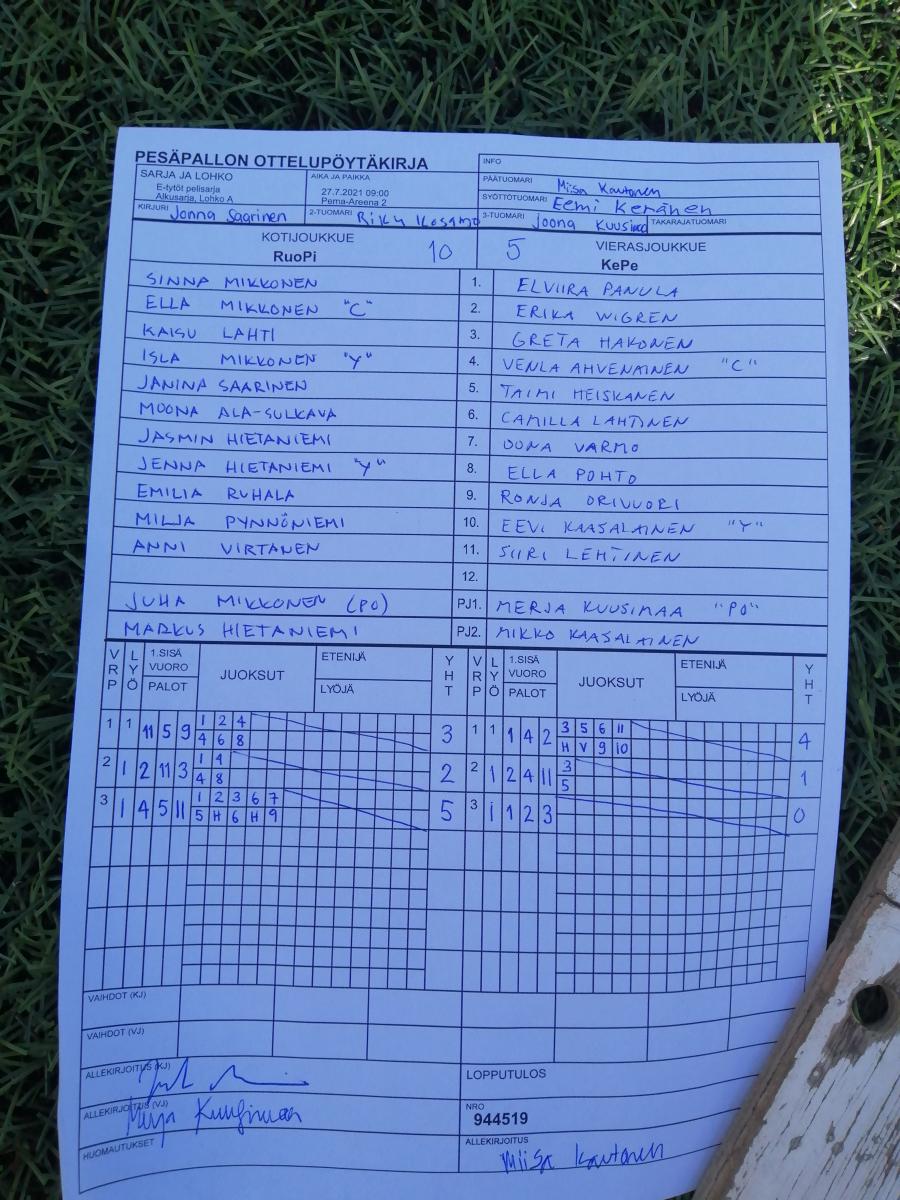 PESÄPALLON OTTELUPÖYTÄKIRJA
INFO
SARJA JA LOHKO
E-tytöt pelisarja
Alkusarja, Lohko A
AIKA JA PAIKKA
27.7.2021 09:00
Pema-Areena 2
PÄÄTUOMARI Miisa Kautonen
SYÖTTÖTUOMARI Eemi Keränen
KIRJURI Jonna Saarinen
2-TUOMARI Riku
3-TUOMARI Joona Kuusimaa
TAKARAJATUOMARI
KOTIJOUKKUE 10 5 VIERASJOUKKUE
RuoPi KePe
SINNA MIKKONEN 1. ELVIIRA PANULA
ELLA MIKKONEN "C" 2. ERIKA WIGREN
KAISU LAHTI 3. GRETA HAKONEN
ISLA MIKKONEN "Y" 4. VENLA AHVENAINEN "C"
JANINA SAARINEN 5. TAIMI HEISKANEN
MOONA ALA-SULKAVA 6. CAMILLA LAHTINEN
JASMIN HIETANIEMI 7. OONA VARMO
JENNA HIETANIEMI "Y" 8. ELLA POHTO
EMILIA RUHALA 9. RONJA ORIVUORI
MILJA PYNNÖNIEMI 10. EEVI KAASALAINEN "Y"
ANNI VIRTANEN 11. SIIRI LEHTINEN
12.
JUHA MIKKONEN (PO) PJ1. MERJA KUUSIMAA "PO"
MARKUS HIETANIEMI PJ2. MIKKO KAASALAINEN
VRP LYÖ 1.SISÄ VUORO PALOT JUOKSUT ETENIJÄ LYÖJÄ YHT VRP LYÖ 1.SISÄ VUORO PALOT JUOKSUT ETENIJÄ LYÖJÄ YHT
1 1 11 5 9 1 2 4 3 1 1 1 4 2 3 5 6 11 4
4 6 8 H V 9 10
2 1 2 11 3 1 4 2 2 1 2 4 11 3 1
4 8 5
3 1 4 5 11 1 2 3 6 7 5 3 1 1 2 3 0
5 H 6 H 9
VAIHDOT (KJ)
VAIHDOT (VJ)
ALLEKIRJOITUS (KJ)
LOPPUTULOS
ALLEKIRJOITUS (VJ) Merja Kuusimaa
NRO
944519
HUOMAUTUKSET
ALLEKIRJOITUS
Miisa Kautonen